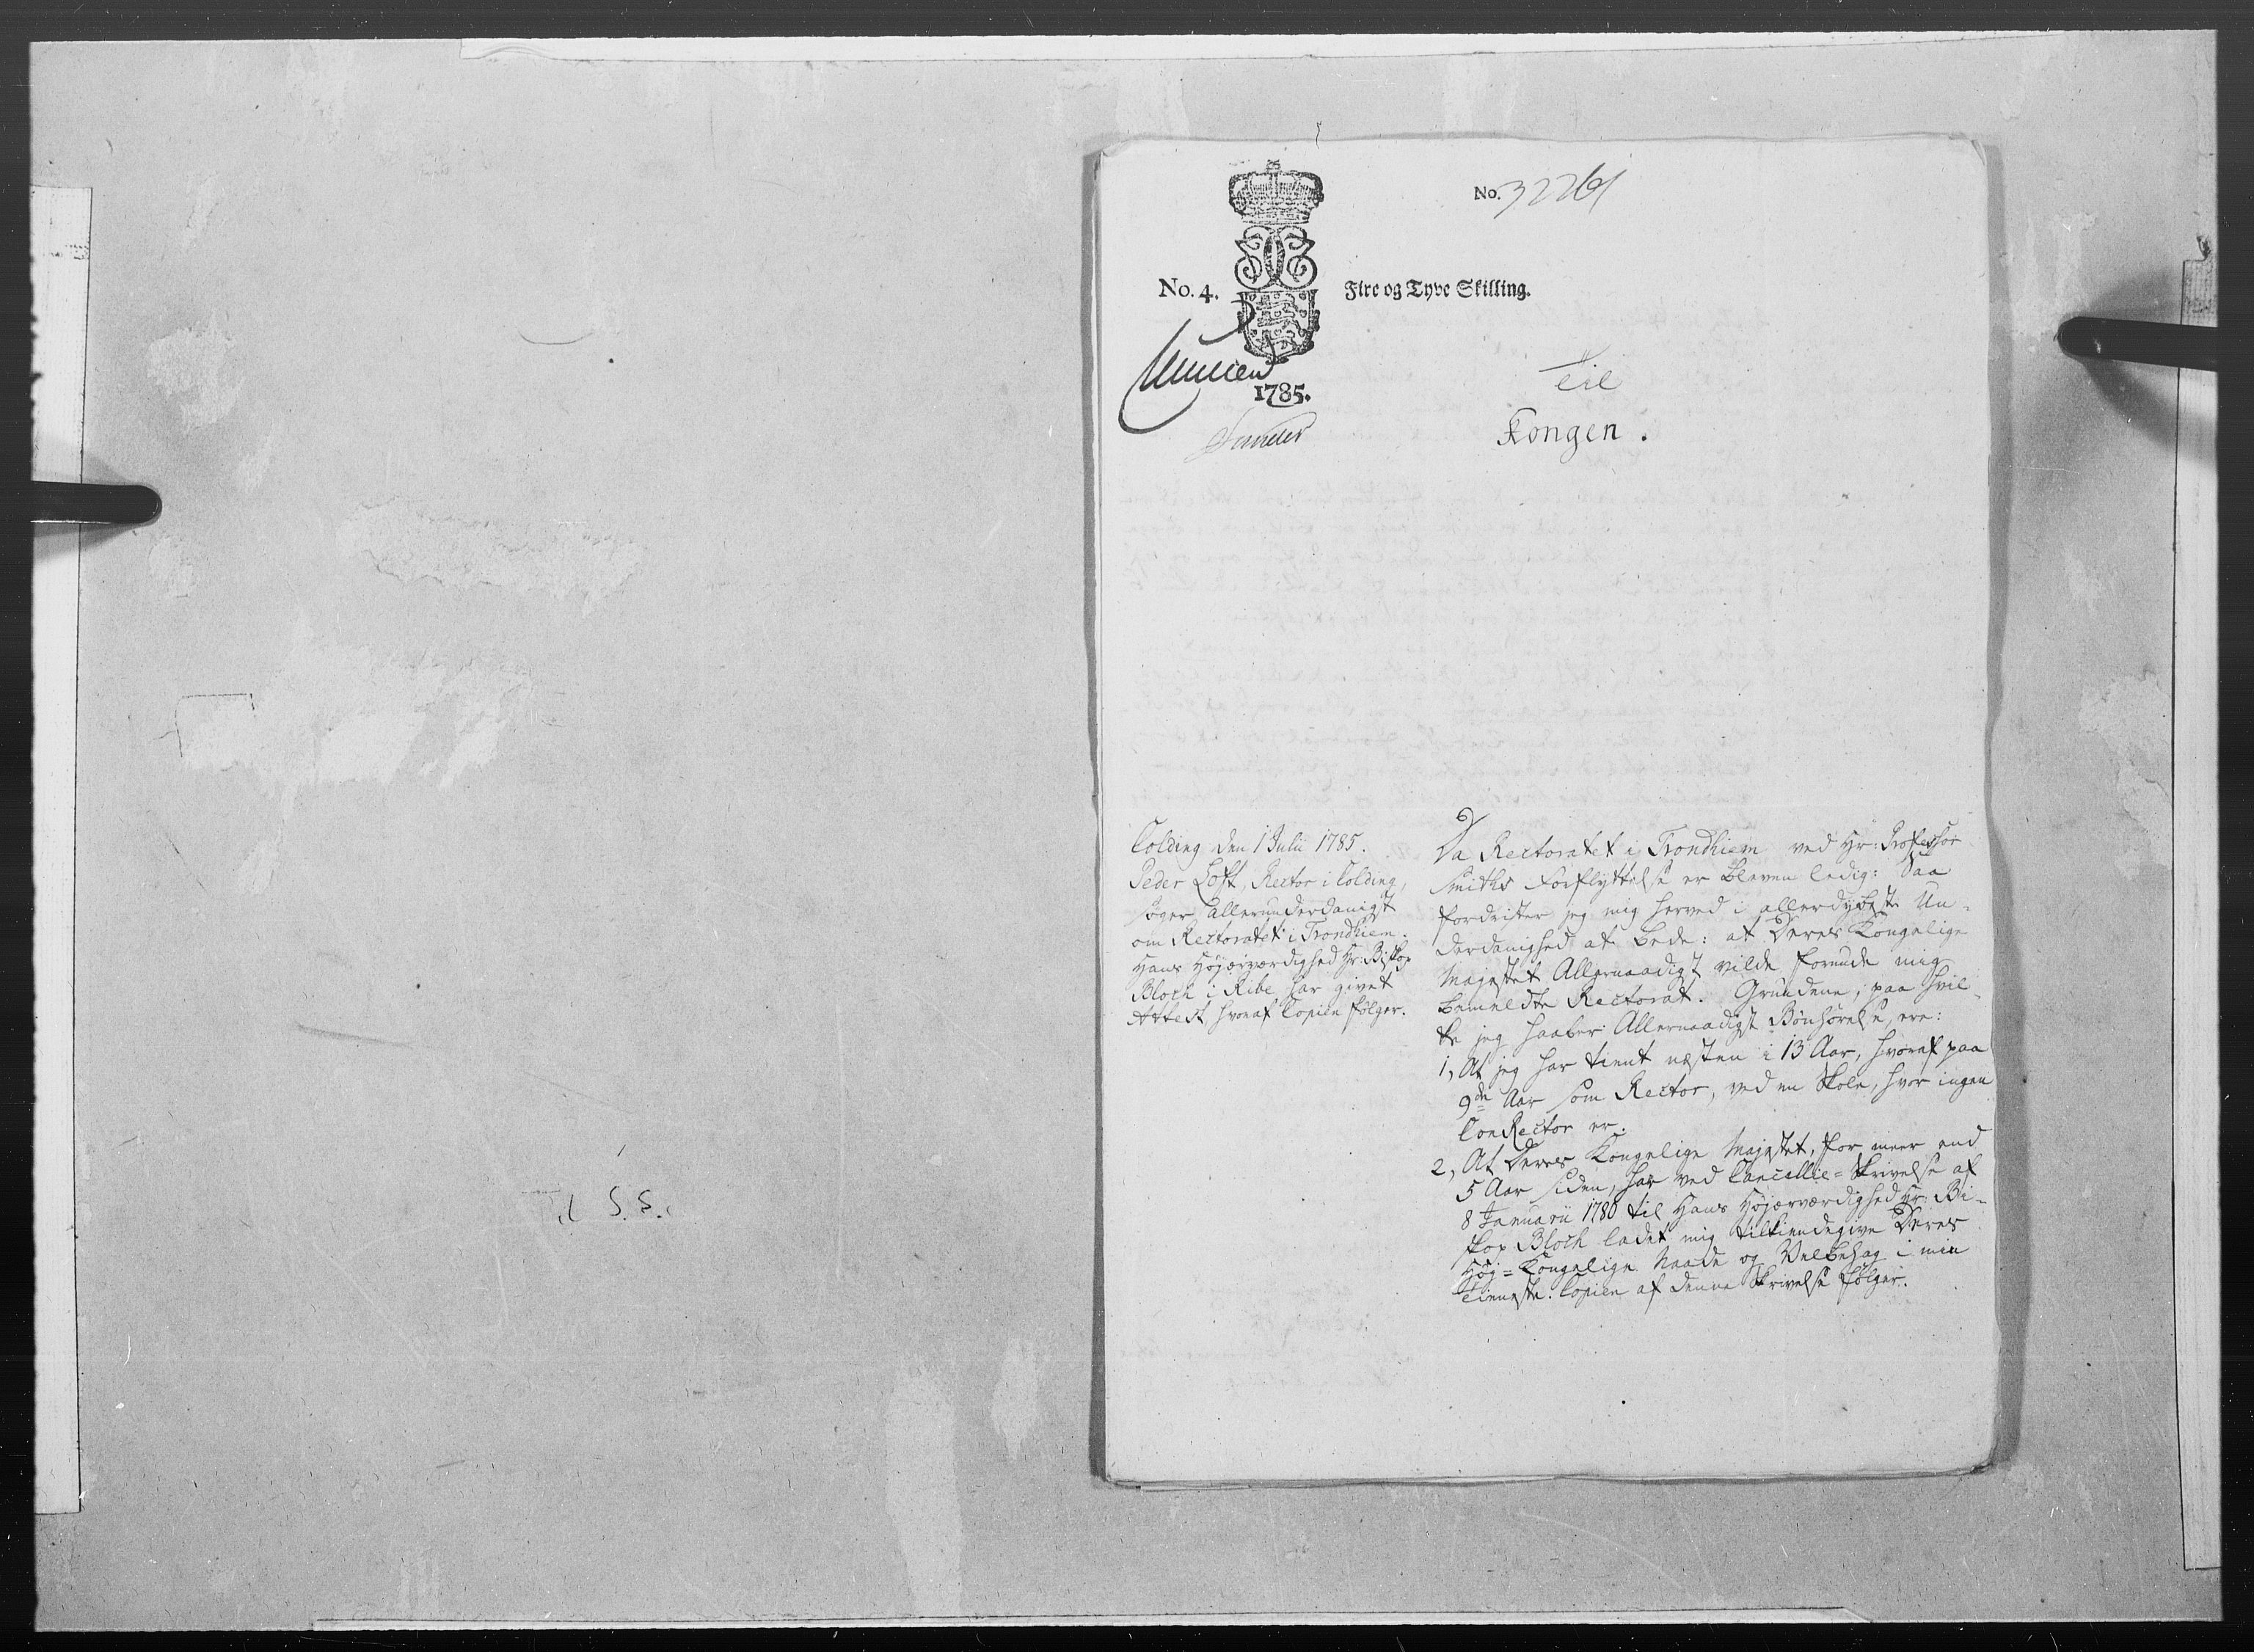 No. 32261
No. 4.
Fire og Tyve Skilling.
1785.
Til
Kongen.
Colding den 1 Julii 1785.
Peder Loft, Rector i Colding,
søger allerunderdanigst
om Rectoratet i Trondhiem.
Hans Højærværdighed Hr: Biskop
Bloch i Ribe har givet
Attest, hvoraf Copien følger.
Da Rectoratet i Trondhiem ved Hr: Professor
Smiths Forflyttelse er bleven ledig: Saa
fordrister jeg mig herved i allerdybeste Un-
derdanighed at bede: at Deres Kongelige
Majestet Allernaadigst vilde forunde mig
bemeldte Rectorat. Grundene, paa hvil-
ke jeg haaber Allernaadigst Bønhørelse, ere:
1, At jeg har tient næsten i 13 Aar, hvoraf paa
9de Aar som Rector, ved en Skole, hvor ingen
ConRector er.
2, At Deres Kongelige Majestet, for meer end
5 Aar siden, har ved Cancellie-Skrivelse af
8 Januarii 1780 til Hans Højærværdighed Hr: Bi-
skop Bloch ladet mig tilkiendegive Deres
Høj-Kongelige Naade og Velbehag i min
Tieneste. Copien af denne Skrivelse følger.
Til S. S.